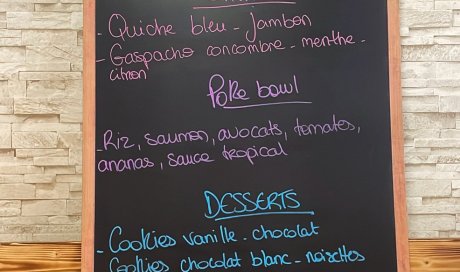 - Quiche bleu - jambon
- Gaspacho concombre - menthe -
citron
Poke bowl
- Riz, saumon, avocats, tomates,
ananas, sauce tropical
DESSERTS
- Cookies vanille - chocolat
Cookies chocolat blanc - noisettes